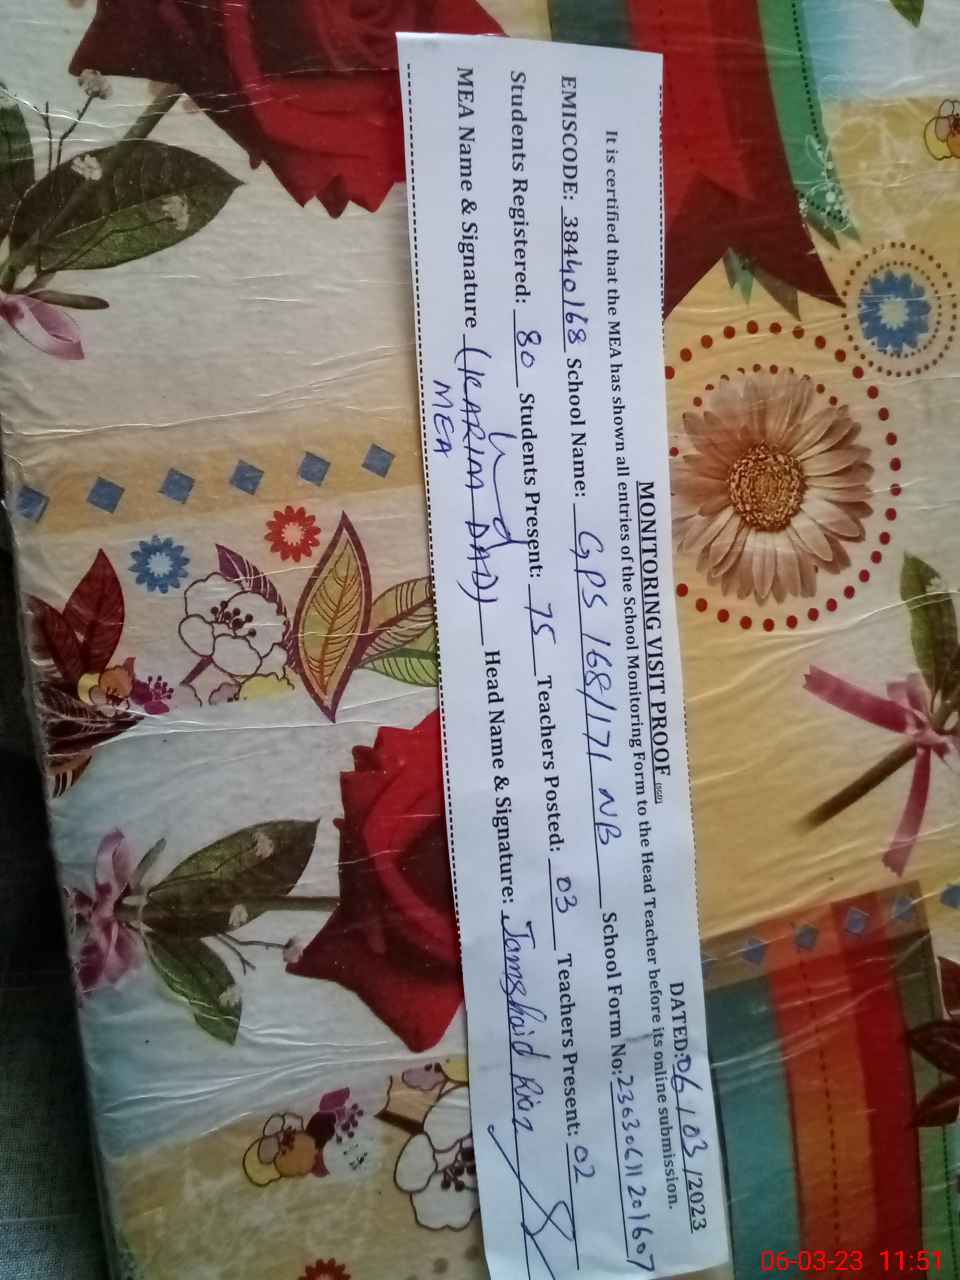 MONITORING VISIT PROOF (SGD)
DATED: 06/03/2023
It is certified that the MEA has shown all entries of the School Monitoring Form to the Head Teacher before its online submission.
EMISCODE: 38440168 School Name: GPS 168/171 NB School Form No: 23630611201607
Students Registered: 80 Students Present: 75 Teachers Posted: 03 Teachers Present: 02
MEA Name & Signature (KARIM DAD) Head Name & Signature: Jamshaid Riaz
MEA
06-03-23 11:51